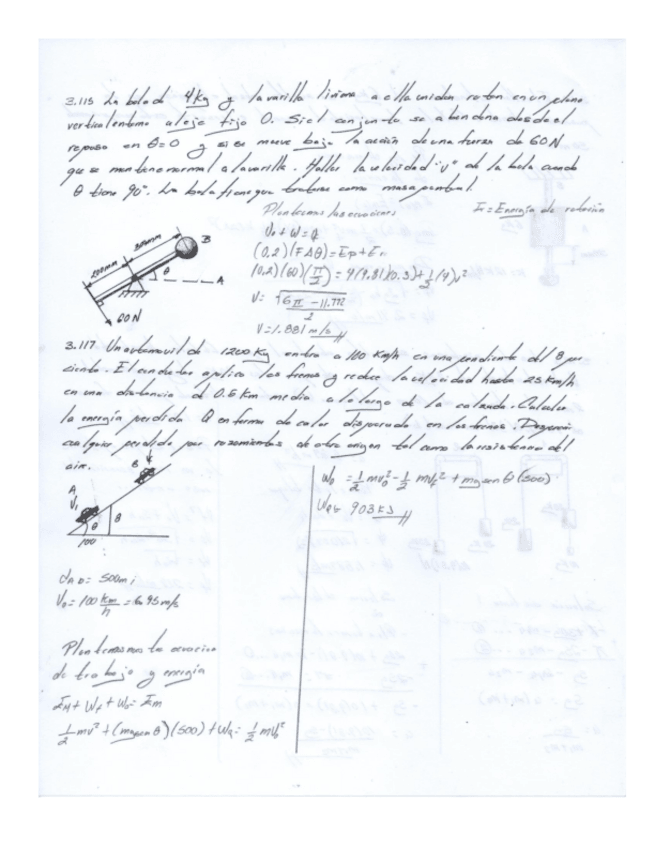 3.115 La bola de 4 kg y la varilla liviana a ella unidas rotan en un plano
vertical entorno al eje fijo O. Si el conjunto se abandona desde el
reposo en θ=0 y si se mueve bajo la acción de una fuerza de 60 N
que se mantiene normal a la varilla. Hallar la velocidad "v" de la bola cuando
θ tiene 90°. La bola tiene que tratarse como masa puntual.
Planteamos las ecuaciones
Er = Energía de rotación
V0 + W = 
(0,2)(FΔθ) = Ep + Er
(0,2)(60)(π/2) = 4(9.81)(0.3) + 1/2(4)v²
V = √
6π - 11.772
2
V = 1.881 m/s
200mm
300mm
B
θ
A
60 N
3.117 Un automovil de 1200 Kg entra a 100 Km/h en una pendiente del 8 por
ciento. El conductor aplica los frenos y reduce la velocidad hasta 25 km/h
en una distancia de 0.5 Km medida a lo largo de la calzada. Calcular
la energía perdida Q en forma de calor disipada en los frenos. 
cualquier perdida por rozamientos de otro origen tal como la resistencia del
aire.
B
A
V1
θ
8
100
WR = 1/2 mv0² - 1/2 mvf² + mg sen θ (500)
WR = 903 KJ
dAB = 500 m
V0 = 100 Km/h = 6.95 m/s
Planteamos la ecuacion
de trabajo y energía
1/2 mv² + (mg sen θ)(500) + WR = 1/2 mv0²